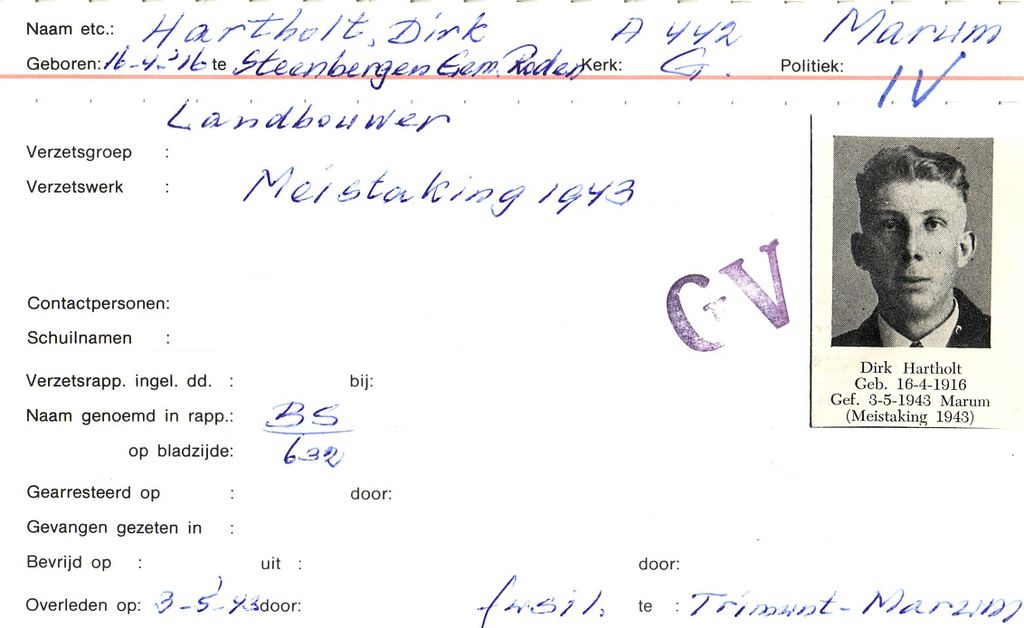 Naam etc.: Hartholt, Dirk A 442 Marum
Geboren: 16-4-'16 te Steenbergen Gem. Roden Kerk: G. Politiek: IV
Landbouwer
Verzetsgroep :
Verzetswerk : Meistaking 1943
GV
Contactpersonen:
Schuilnamen :
Verzetsrapp. ingel. dd. : bij:
Naam genoemd in rapp.: BS
op bladzijde: 632
Gearresteerd op : door:
Gevangen gezeten in :
Bevrijd op : uit : door:
Overleden op: 3-5-'43 door: fusil. te : Trimunt-Marum
Dirk Hartholt
Geb. 16-4-1916
Gef. 3-5-1943 Marum
(Meistaking 1943)